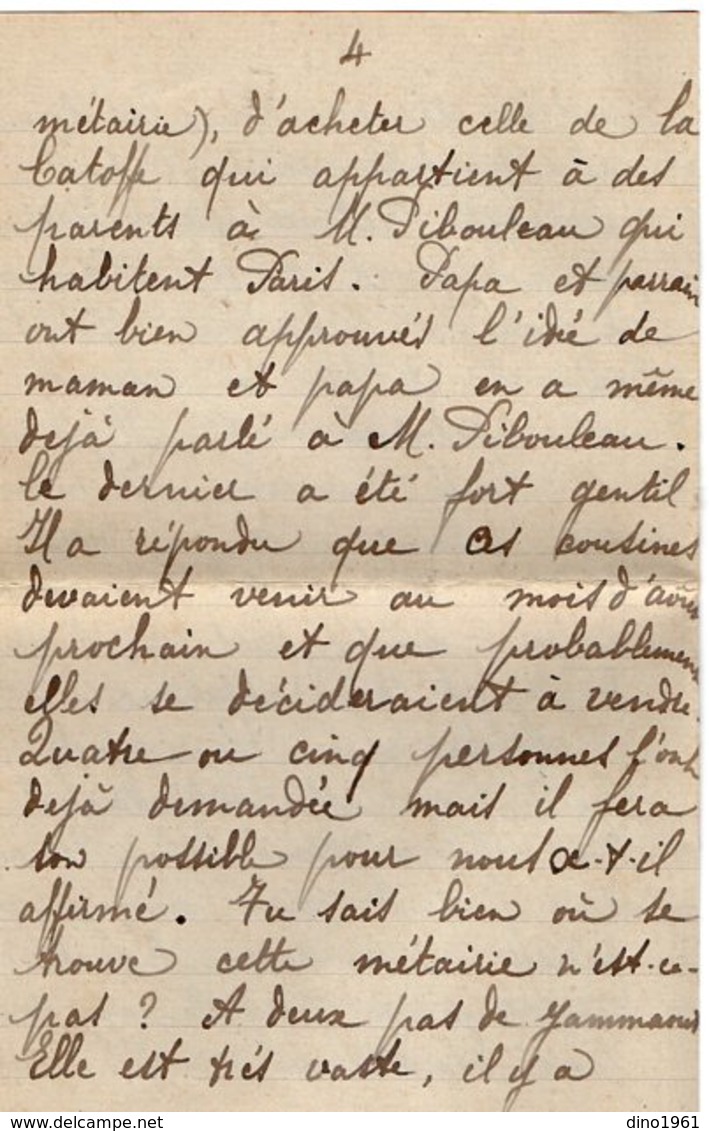 4
métairie), d'acheter celle de la
Catoffe qui appartient à des
parents à M. Pibouleau qui
habitent Paris. Papa et parrain
ont bien approuvés l'idée de
maman et papa en a même
dejà parlé à M. Pibouleau.
Ce dernier a été fort gentil
Il a répondu que ces cousines
devaient venir au mois d'août
prochain et que probablement
elles se décideraient à vendre.
Quatre ou cinq personnes l'ont
dejà demandée mais il fera
son possible pour nous a-t-il
affirmé. Tu sais bien où se
trouve cette métairie n'est-ce-
pas ? A deux pas de
Elle est très vaste, il y a
dino1961